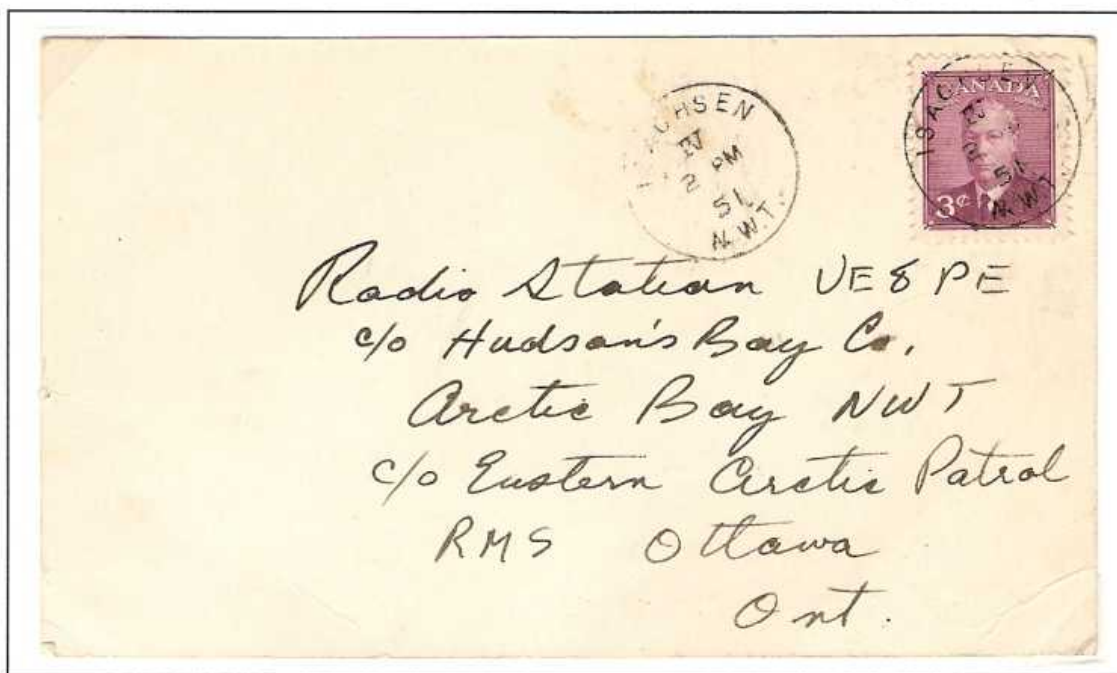 ISACHSEN
IV
2 PM
51
N.W.T.
CANADA
3¢
ISACHSEN
IV
2
51
N.W.T.
Radio Station VE8PE
c/o Hudson's Bay Co.
Arctic Bay NWT
c/o Eastern Arctic Patrol
RMS Ottawa
Ont.